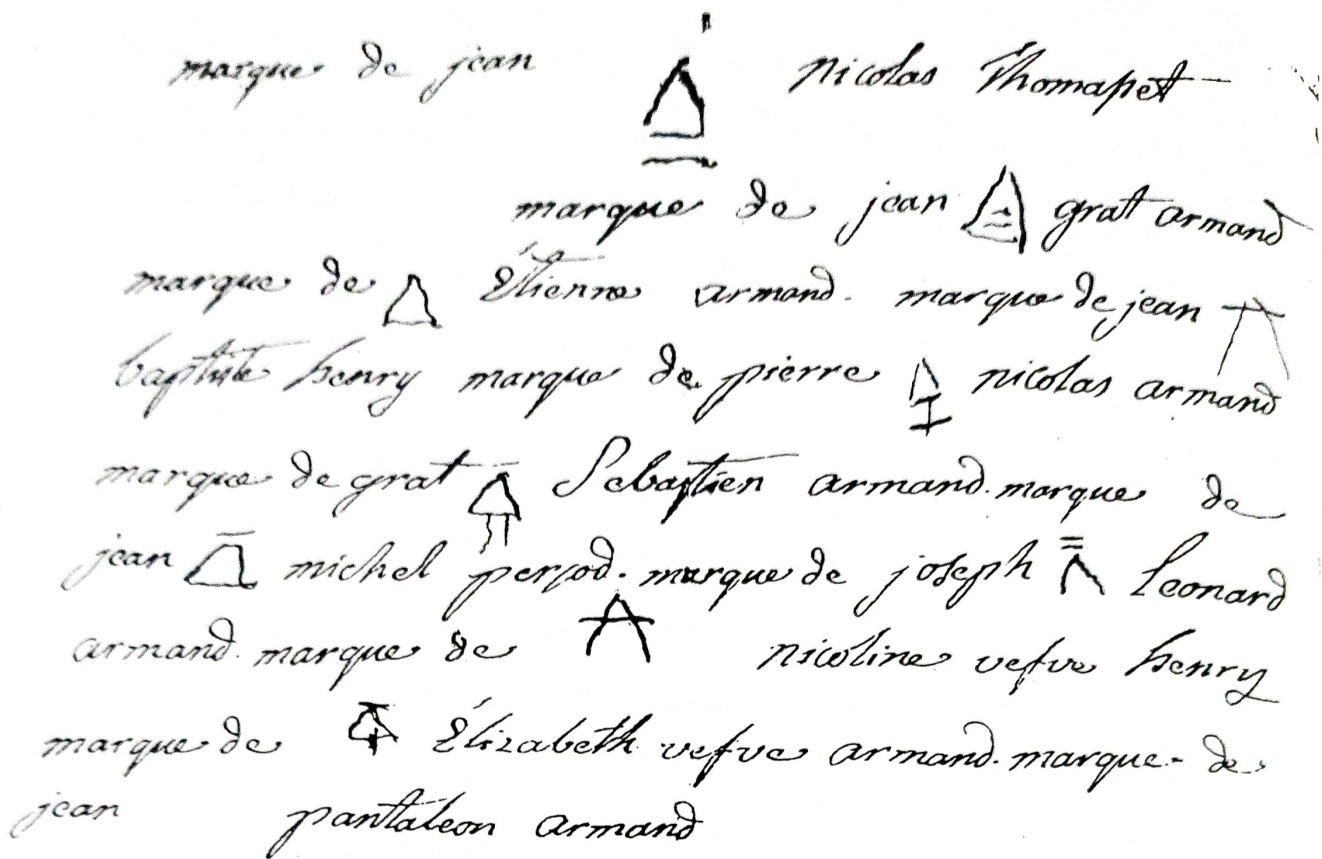 marque de jean nicolas Thomapet
marque de jean grat armand
marque de Étienne armand. marque de jean
baptiste henry marque de pierre nicolas armand
marque de grat Sebastien armand. marque de
jean michel perrod. marque de joseph Leonard
armand. marque de nicoline vefve henry
marque de Élizabeth vefve armand. marque de
jean pantaleon armand